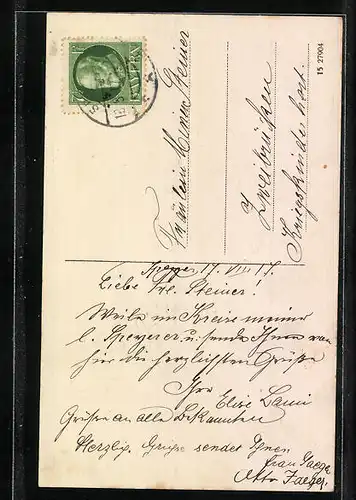 BAYERN
Fräulein Steiner
Zweibrücken
Kriegskinderhort
15 27904
Speyer 17. VIII 17.
Liebe Frl. Steiner!
Weile im Kreise meiner
l. Speyerer u. sende Ihnen von
hier die herzlichsten Grüße
Ihre Elise
Grüße an alle Bekannten
Herzlg. Grüße sendet Ihnen
Frau Jaeger
Otto Jaeger.